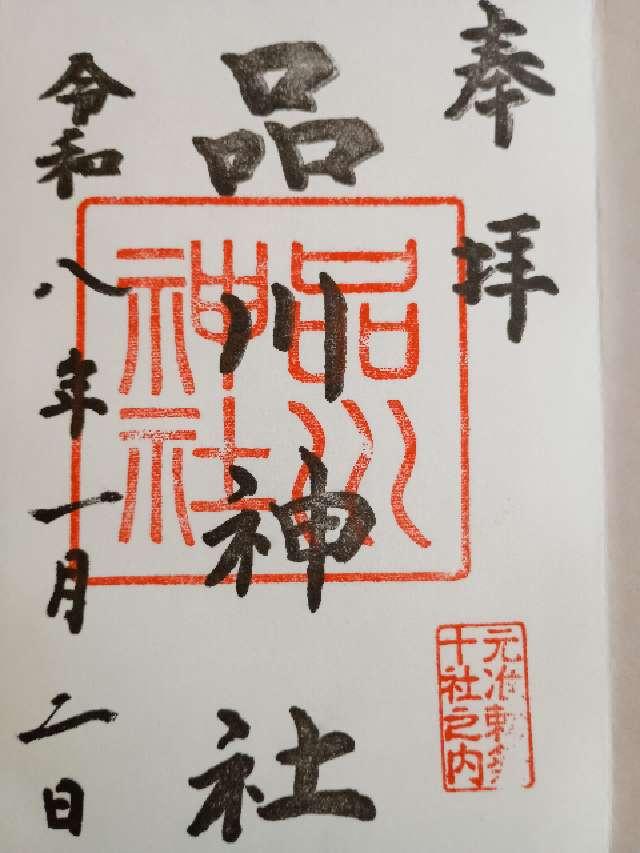 奉拝
品川神社
品川
神社
元准勅祭
十社之内
令和八年一月二日